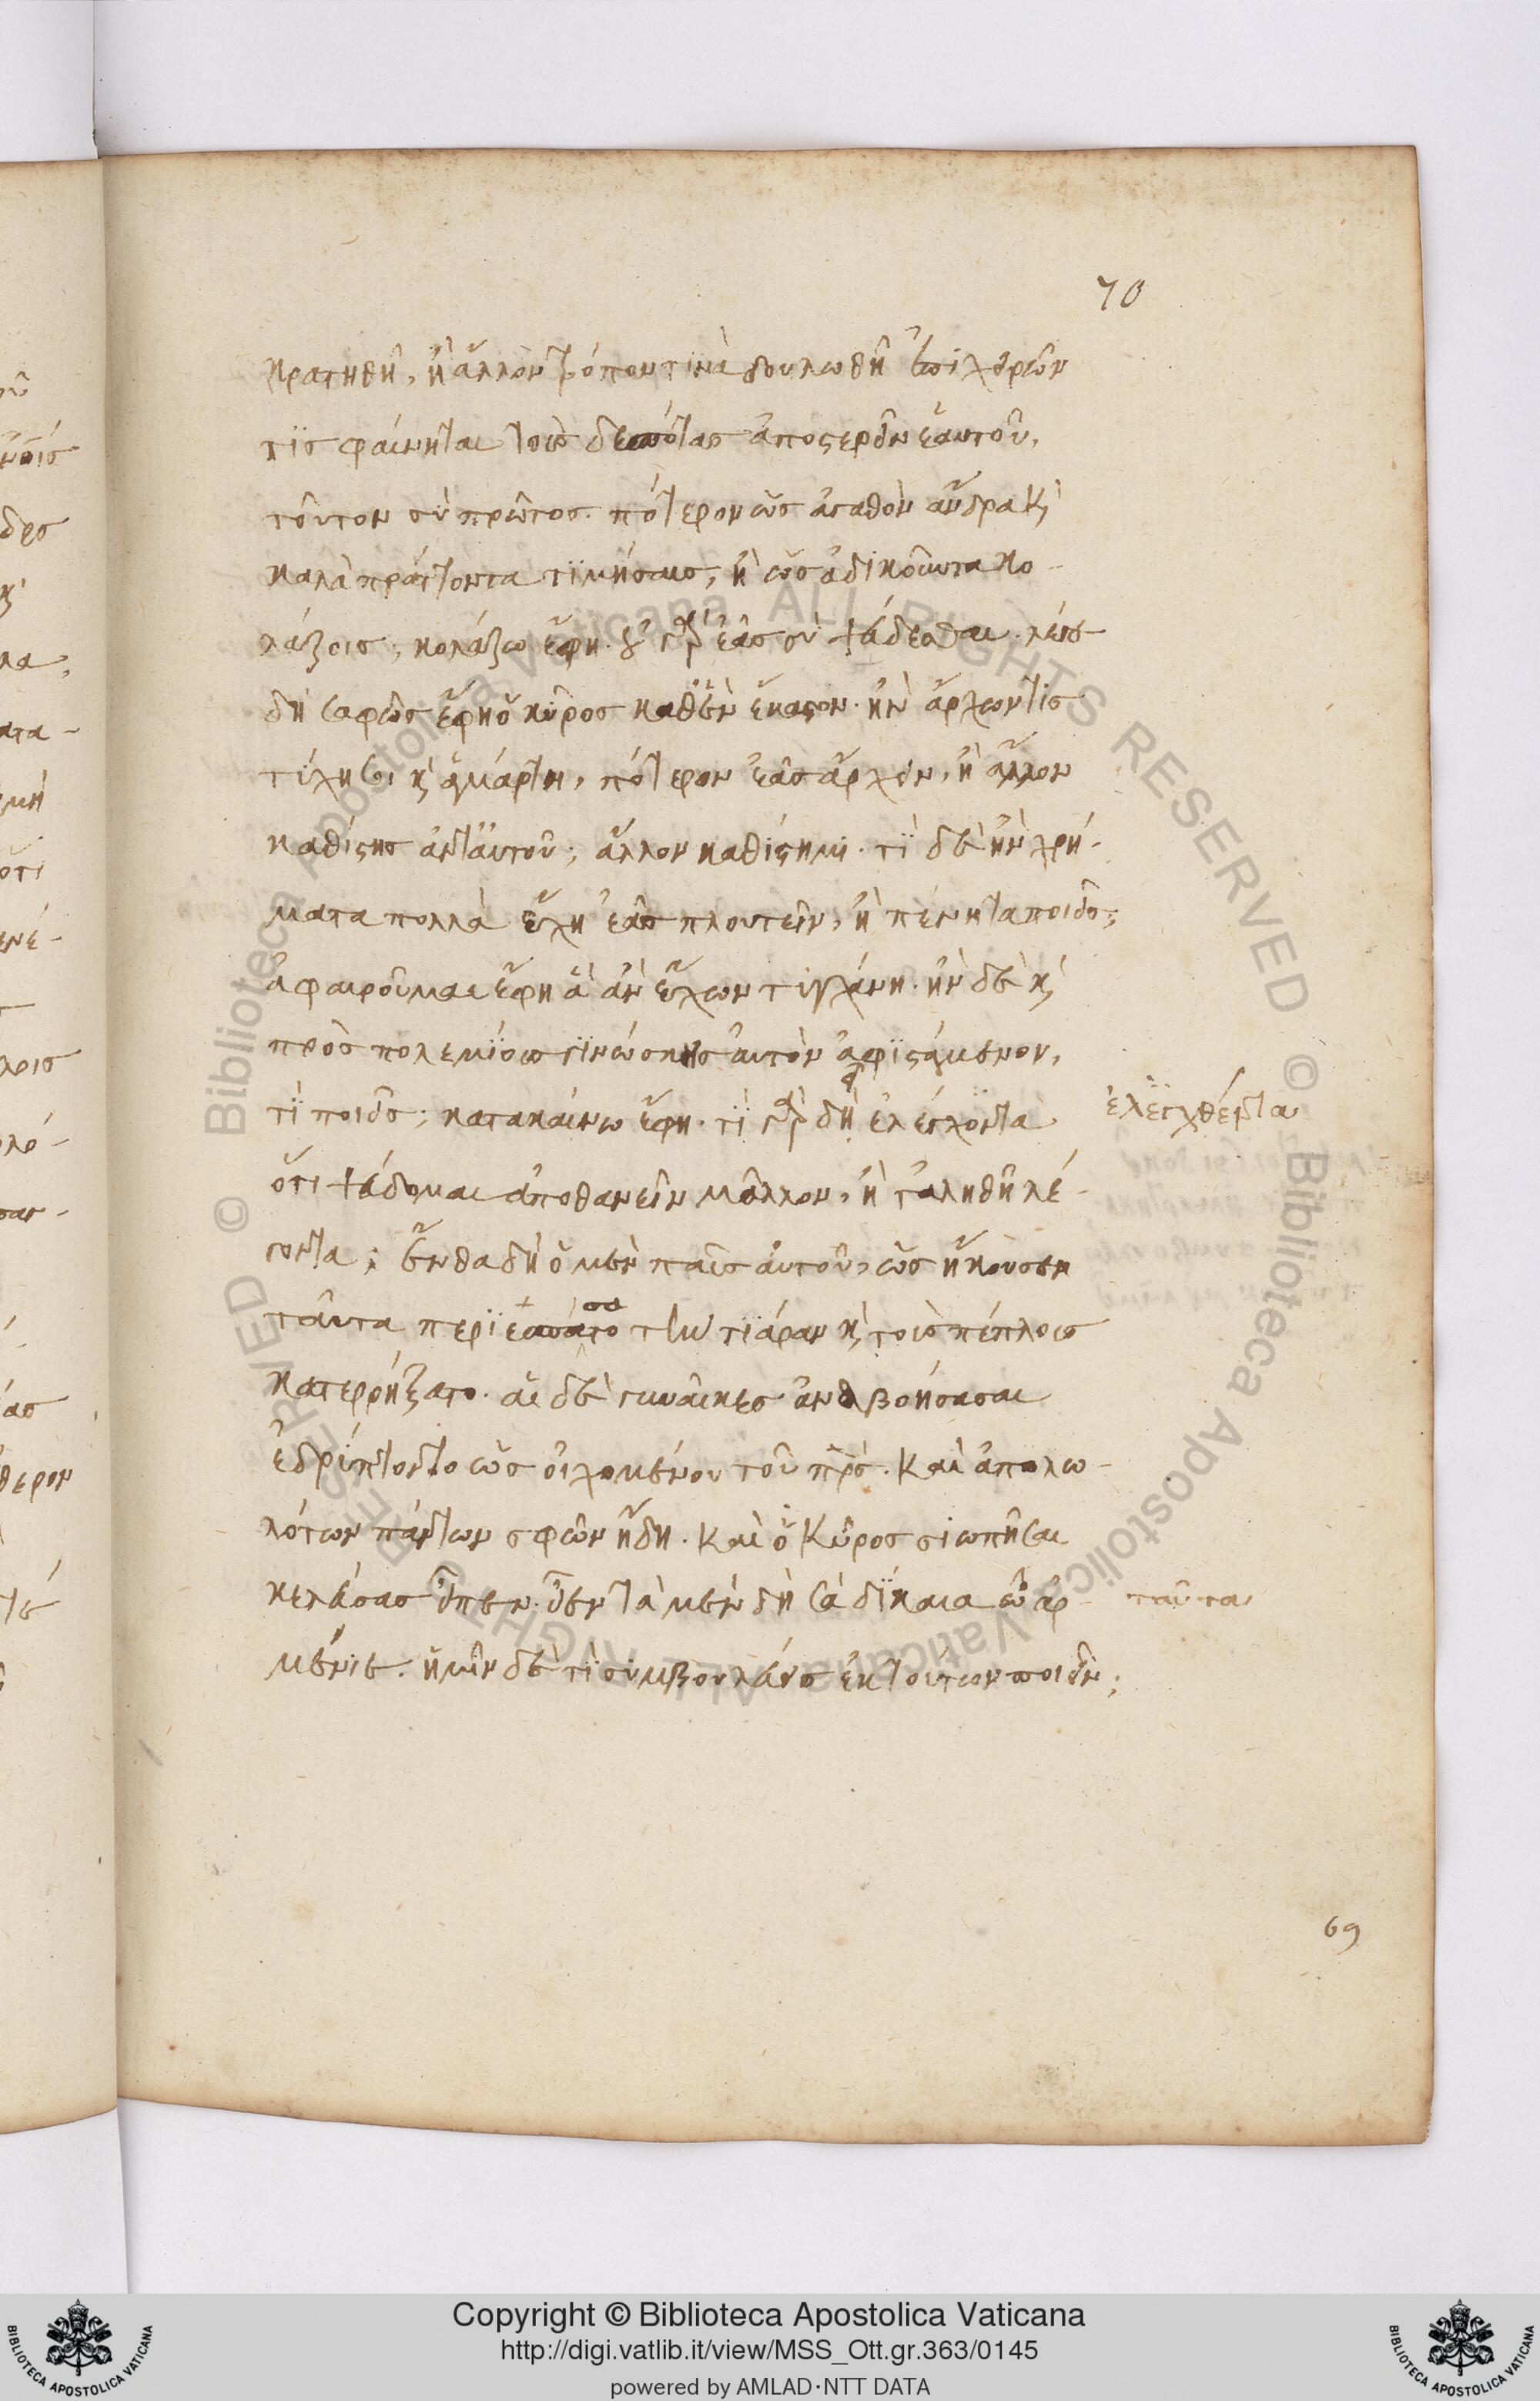 70
κρατηθῆ, ἢ ἄλλον τρόπον τινὰ δουλωθῆ ἐπιχειρῶν
τὶς φαίνηται τοὺς δεσπότας ἀποστερεῖν ἑαυτοῦ,
τοῦτον σὺ πρῶτος. πότερον ὡς ἀγαθὸν ἄνδρα κὶ
καλὰ πράττοντα τιμήσαις, ἢ ὡς ἀδικοῦντα κο-
λάζοις; κολάζω ἔφη. οὐ γὰρ ἐᾶς σὺ ψεύδεσθαι. λέγε
δὴ σαφῶς ἔφη ὁ κῦρος καθ' ἓν ἕκαστον. ἢν ἄρχων τὶς
τύχη σοι κὶ ἁμάρτη, πότερον ἐᾶς ἄρχειν, ἢ ἄλλον
καθίστης ἀντ' αὐτοῦ; ἄλλον καθίστημι. τί δὲ ἢν χρή-
ματα πολλὰ ἔχη ἐᾶς πλουτεῖν, ἢ πένητα ποιεῖς;
ἀφαιροῦμαι ἔφη ἃ ἂν ἔχων τυγχάνη. ἢν δὲ κὶ
πρὸς πολεμίους γινώσκης αὐτὸν ἀφιστάμενον,
τί ποιεῖς; κατακαίνω ἔφη. τί γὰρ δεῖ ἐλέγχοντα
ἐλεγχθέντα
ὅτι ψεύδομαι ἀποθανεῖν μᾶλλον, ἢ τἀληθῆ λέ-
γοντα; ἔνθα δὴ ὁ μὲν παῖς αὐτοῦ, ὡς ἤκουσεν
ταῦτα περιεσπάσατο τὴν τιάραν κὶ τοὺς πέπλους
κατερρήξατο. αἱ δὲ γυναῖκες ἀναβοήσασαι
ἐδρύπτοντο ὡς οἰχομένου τοῦ πρς. καὶ ἀπολω-
λότων πάντων σφῶν ἤδη. καὶ ὁ Κῦρος σιωπῆσαι
κελεύσας εἶπεν. εἶεν τὰ μὲν δὴ σὰ δίκαια ὦ ἀρ-
ταῦτα
μένιε. ἡμῖν δὲ τί συμβουλεύεις ἐκ τούτων ποιεῖν;
69
Copyright © Biblioteca Apostolica Vaticana
http://digi.vatlib.it/view/MSS_Ott.gr.363/0145
powered by AMLAD·NTT DATA